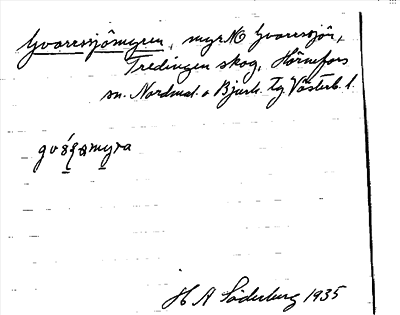 Gvarssjömyren, myr N Gvarssjön,
Tredingen skog, Hörnefors
sn. Nordmal. o Bjurh. tg Västerb. l.
myra
H A Söderberg 1935